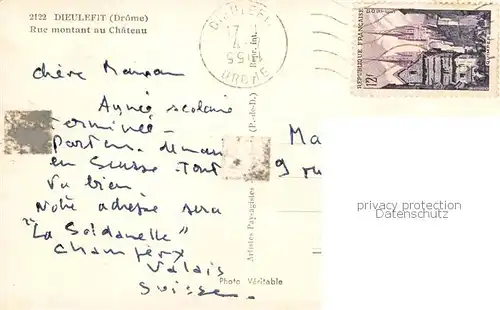 2122 DIEULEFIT (Drôme)
Rue montant au Château
DIEULEFIT
DROME
RÉPUBLIQUE FRANÇAISE
12f
chère Maman
Année scolaire
terminée -
Partons demain
en Suisse. Tout
va bien
Notre adresse sera
"La Soldanelle"
Champéry
Valais
Suisse.
Repr. int.
Artistes Paysagistes (P.-de-D.)
Ma
9 ru
privacy protection
Datenschutz
Photo Véritable